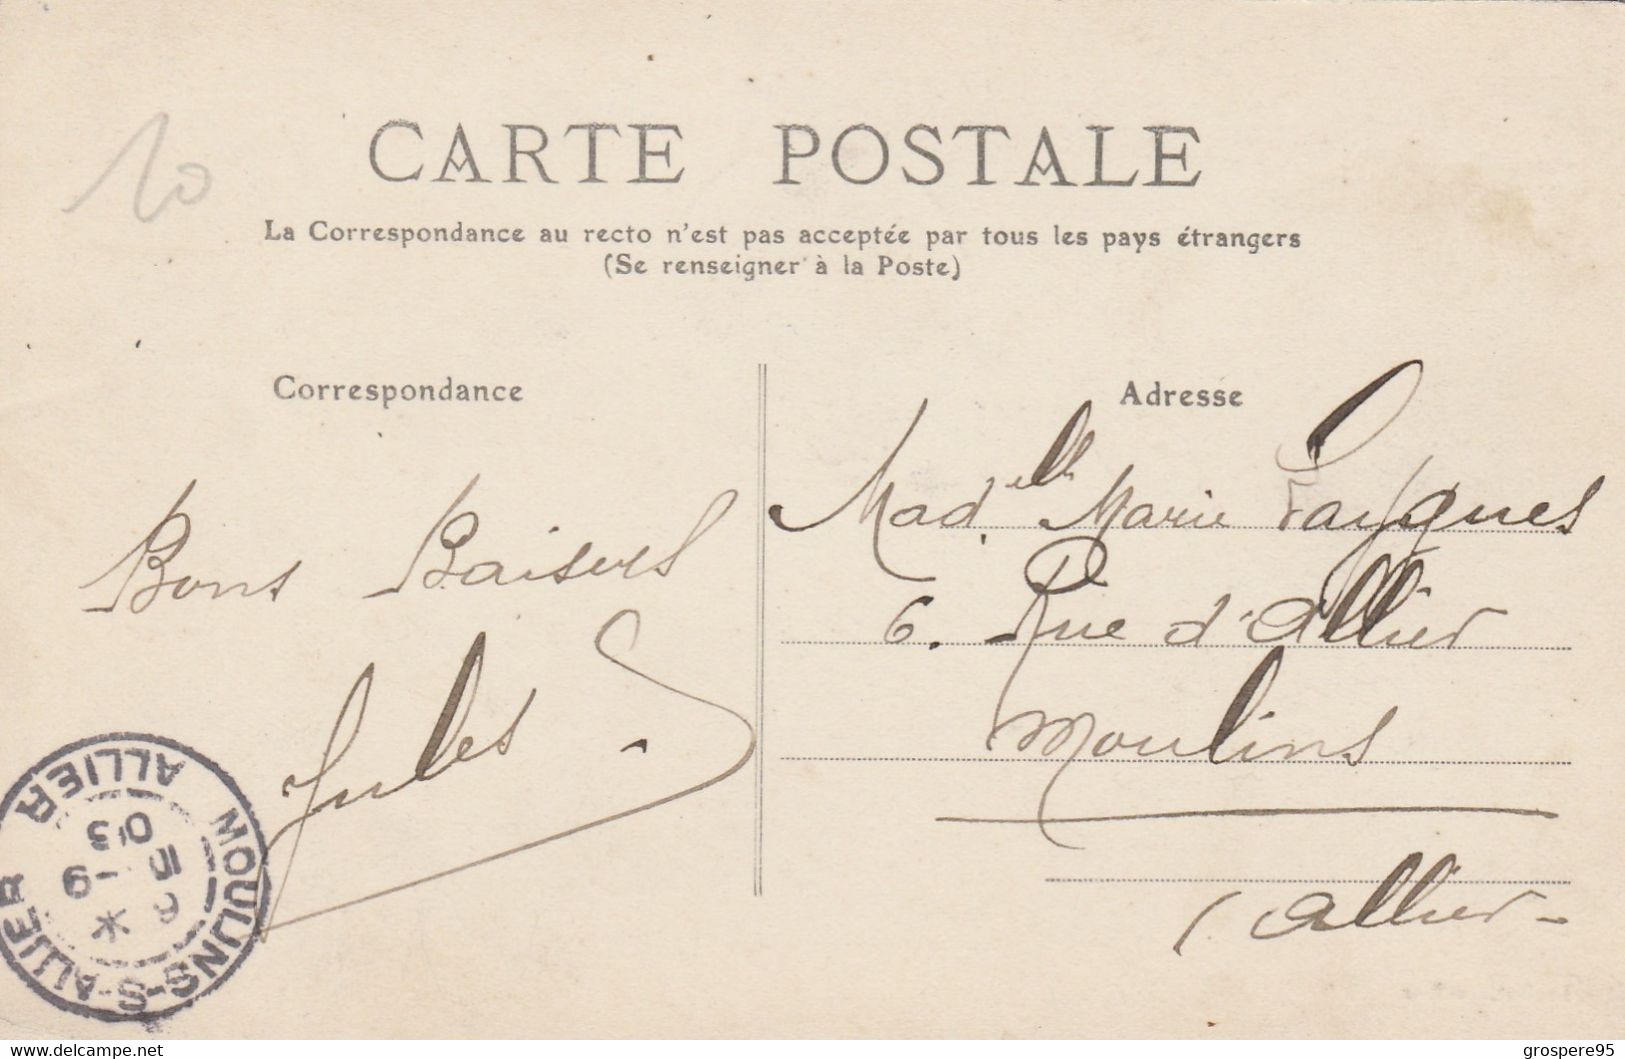 10
CARTE POSTALE
La Correspondance au recto n'est pas acceptée par tous les pays étrangers
(Se renseigner à la Poste)
Correspondance
Bons Baisers
Jules
Adresse
Mad.elle Marie
6. Rue d'Allier
Moulins
(Allier-
MOULINS-S-ALLIER
ALLIER
6 *
15 -9
03
delcampe.net
grospere95